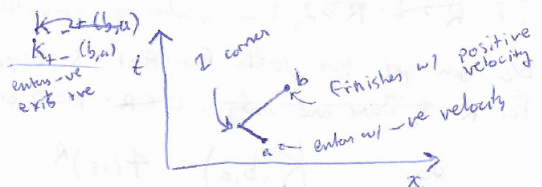 K_-+(b,a)
K_+-(b,a)
enter -ve
exit +ve
t
1 corner
b
Finishes w/ positive
velocity
a
enter w/ -ve velocity
x